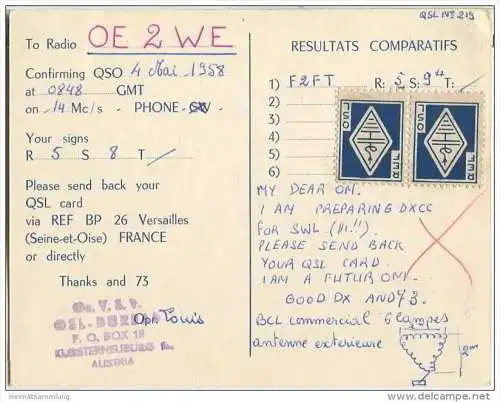 QSL Nº 219
To Radio OE 2 WE
Confirming QSO 4 Mai 1958
at 0848 GMT
on 14 Mc/s - PHONE - CW
Your signs
R 5 S 8 T /
Please send back your
QSL card
via REF BP 26 Versailles
(Seine-et-Oise) FRANCE
or directly
Thanks and 73
Oe. V. S. V.
QSL-BUREAU
P. O. BOX
KLOSTERNEUBURG
AUSTRIA
Opr. Louis
RESULTATS COMPARATIFS
1) F2FT R: 5 S: 9+ T: /
2)
3)
4)
5)
6)
REF
QSL
REF
QSL
MY DEAR OM.
I AM PREPARING DXCC
FOR SWL (HI.!!)
PLEASE SEND BACK
YOUR QSL CARD.
I AM A FUTUR OM.
GOOD DX AND 73.
BCL commercial 6 lampes
antenne exterieure
heimatsammlung